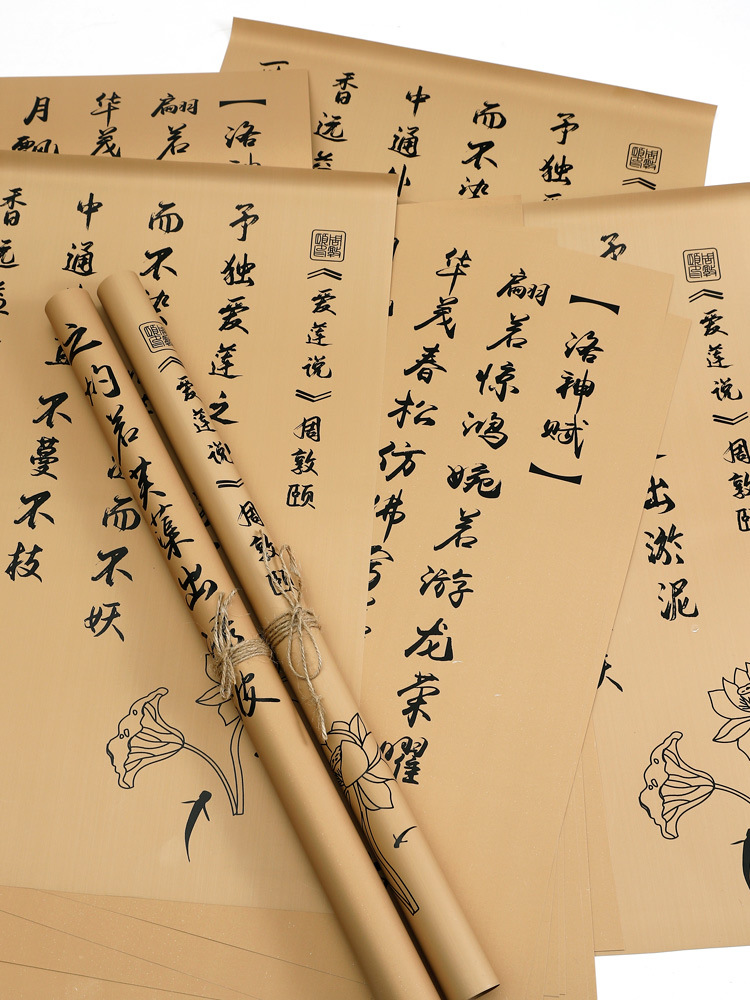 香远
中通外
而不染
予独爱
《
月飘
华茂
翩若
【洛神
《爱莲说》周敦颐
予独爱莲之
而不染
而不妖
中通
直不蔓不枝
香远益
【洛神赋】
翩若惊鸿婉若游龙荣曜
华茂春松仿佛
《爱莲说》周敦颐
予
出淤泥
《爱莲说》周敦颐
之灼若芙蕖出
波